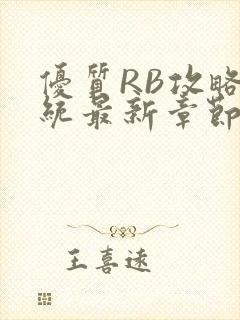 優質RB攻略
統最新章節
王喜遠